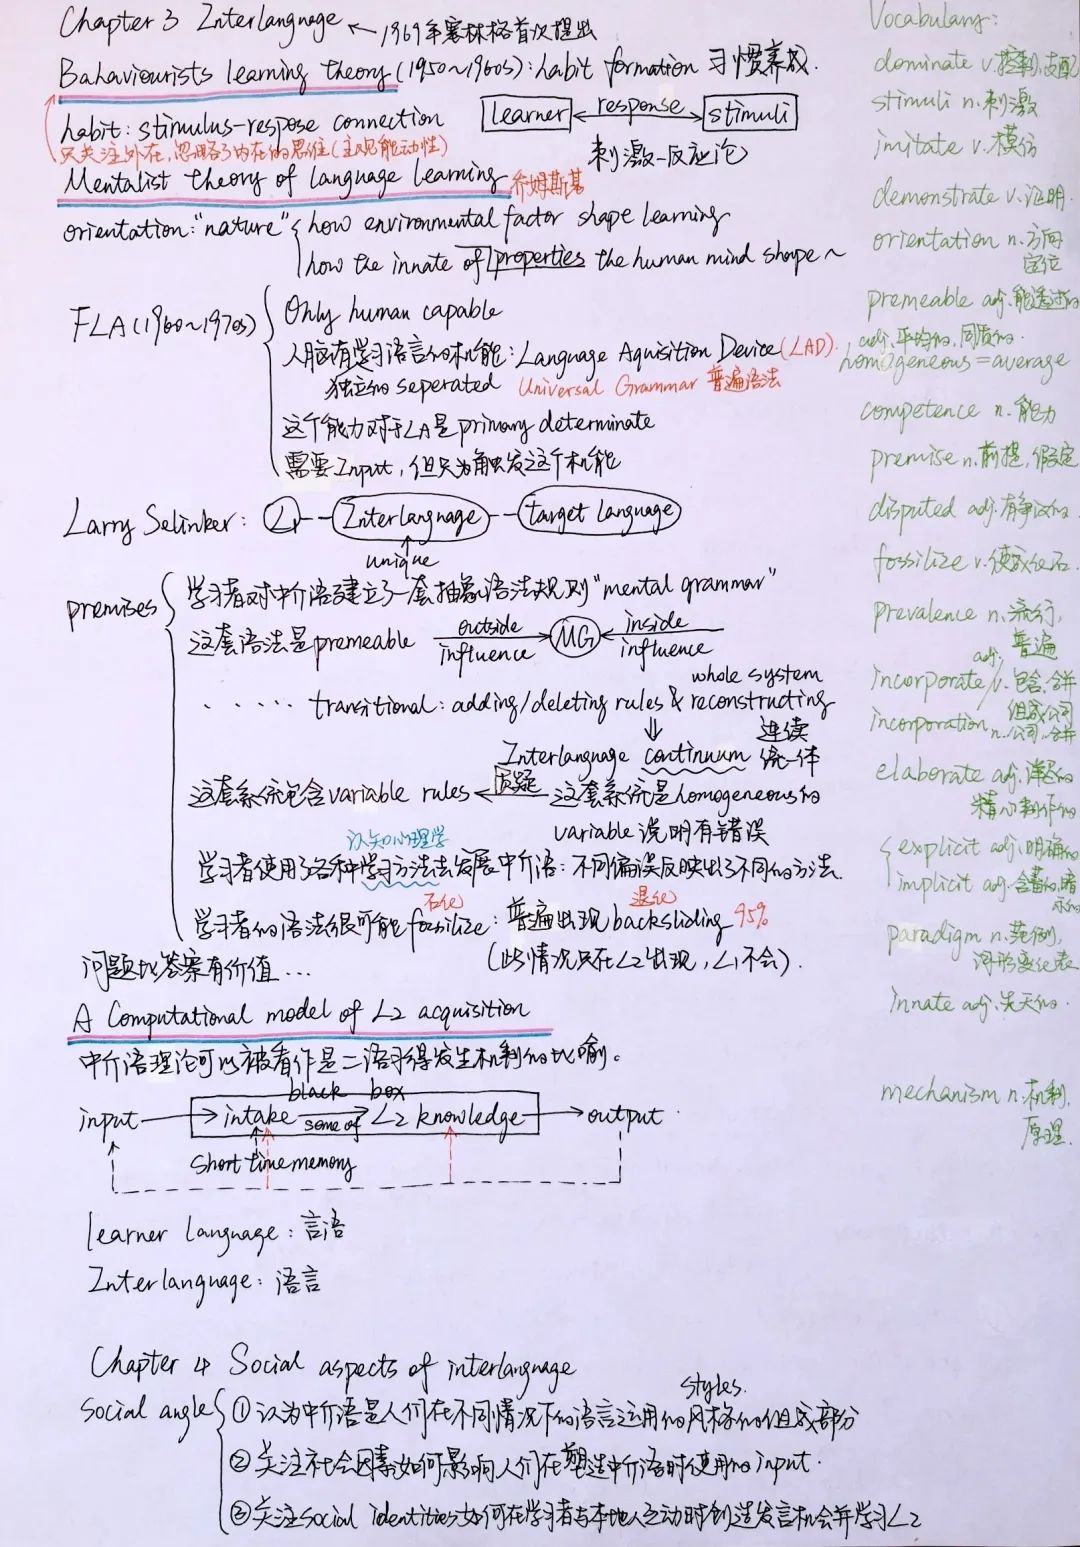 Chapter 3 Interlanguage ← 1969年塞林格首次提出
Bahaviourists learning theory (1950~1960s): habit formation 习惯养成.
habit: stimulus-respose connection
learner ←response→ stimuli
只关注外在,忽略了内在的思维(主观能动性)
刺激-反应论
Mentalist theory of language learning 乔姆斯基
orientation: "nature" { how environmental factor shape learning
how the innate of properties the human mind shape ~
FLA (1960~1970s) { Only human capable
人脑有学习语言的机能: Language Aquisition Device (LAD).
独立的 seperated Universal Grammar 普遍语法
这个能力对于LA是 primary determinate
需要Input, 但只为触发这个机能
Larry Selinker: L1 -- Interlangnage -- target language
unique
premises { 学习者对中介语建立了一套抽象语法规则 "mental grammar"
这套语法是premeable outside influence → MG ← inside influence
whole system
...... transitional: adding/deleting rules & reconstructing
⇓ 连续
Interlanguage continuum 统一体
这套系统包含 variable rules ←质疑— 这套系统是homogeneous的
variable 说明有错误
认知心理学
学习者使用了各种学习方法去发展中介语: 不同偏误反映出了不同的方法.
石化 退化
学习者的语法很可能 fossilize: 普遍出现 backsliding 95%
(此情况只在L2出现, L1不会).
问题比答案有价值...
A Computational model of L2 acquisition
中介语理论可以被看作是二语习得发生机制的比喻。
black box
input → intake some of → L2 knowledge → output.
short time memory
learner language: 言语
Interlanguage: 语言
Chapter 4 Social aspects of interlangnage
styles.
Social angle { ①认为中介语是人们在不同情况下的语言运用的风格的组成部分
②关注社会因素如何影响人们在塑造中介语时使用的input.
③关注social identities如何在学习者与本地人互动时创造发言机会并学习L2
Vocabulary:
dominate v.控制,支配
stimuli n.刺激
imitate v.模仿
demonstrate v.证明
orientation n.方向
定位
premeable adj.能透过的
adj.平均的,同质的.
homogeneous = average
competence n.能力
premise n.前提,假定
disputed adj.有争议的
fossilize v.使成化石
prevalence n.流行,
普遍
adj.
incorporate v.包含,合并
组成公司
incorporation n.公司,合并
elaborate adj.详尽的
精心制作的
{ explicit adj.明确的
implicit adj.含蓄的,暗示的
paradigm n.范例,
词形变化表
innate adj.先天的.
mechanism n.机制,
原理.